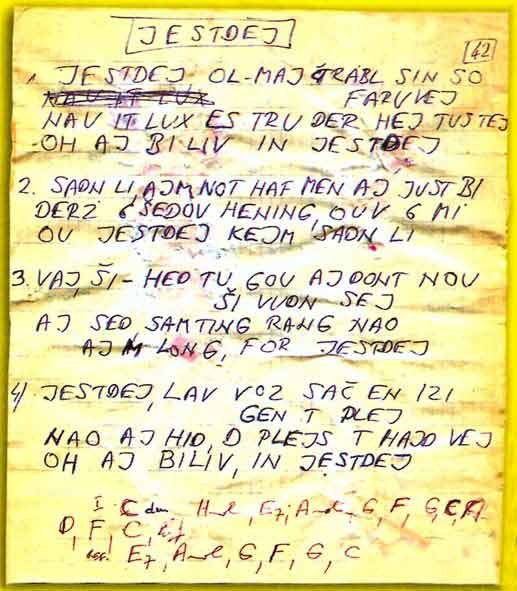 JESTDEJ
42
1. JESTDEJ OL-MAJ TRABL SIN SO
FARUVEJ
NAU IT LUX ES TRU DER HEJ TUSTEJ
-OH AJ BILIV IN JESTDEJ
2. SADN LI, AJM NOT HAF MEN AJ JUST BI
DERZ 6 ŠEDOV HENING, OUV 6 MI
OU JESTDEJ KEJM SADN LI
3. VAJ, ŠI - HED TU GOU AJ DONT NOU
ŠI VUDN SEJ
AJ SED, SAMTING RANG NAO
AJ M LONG, FOR JESTDEJ
4) JESTDEJ, LAV VOZ SAČ EN IZI
GEN T PLEJ
NAO AJ HID, D PLEJS T HAJD VEJ
OH AJ BILIV, IN JESTDEJ
I C dur E7, G, F, G, C
D, F, C,
E7, Amol, G, F, G, C